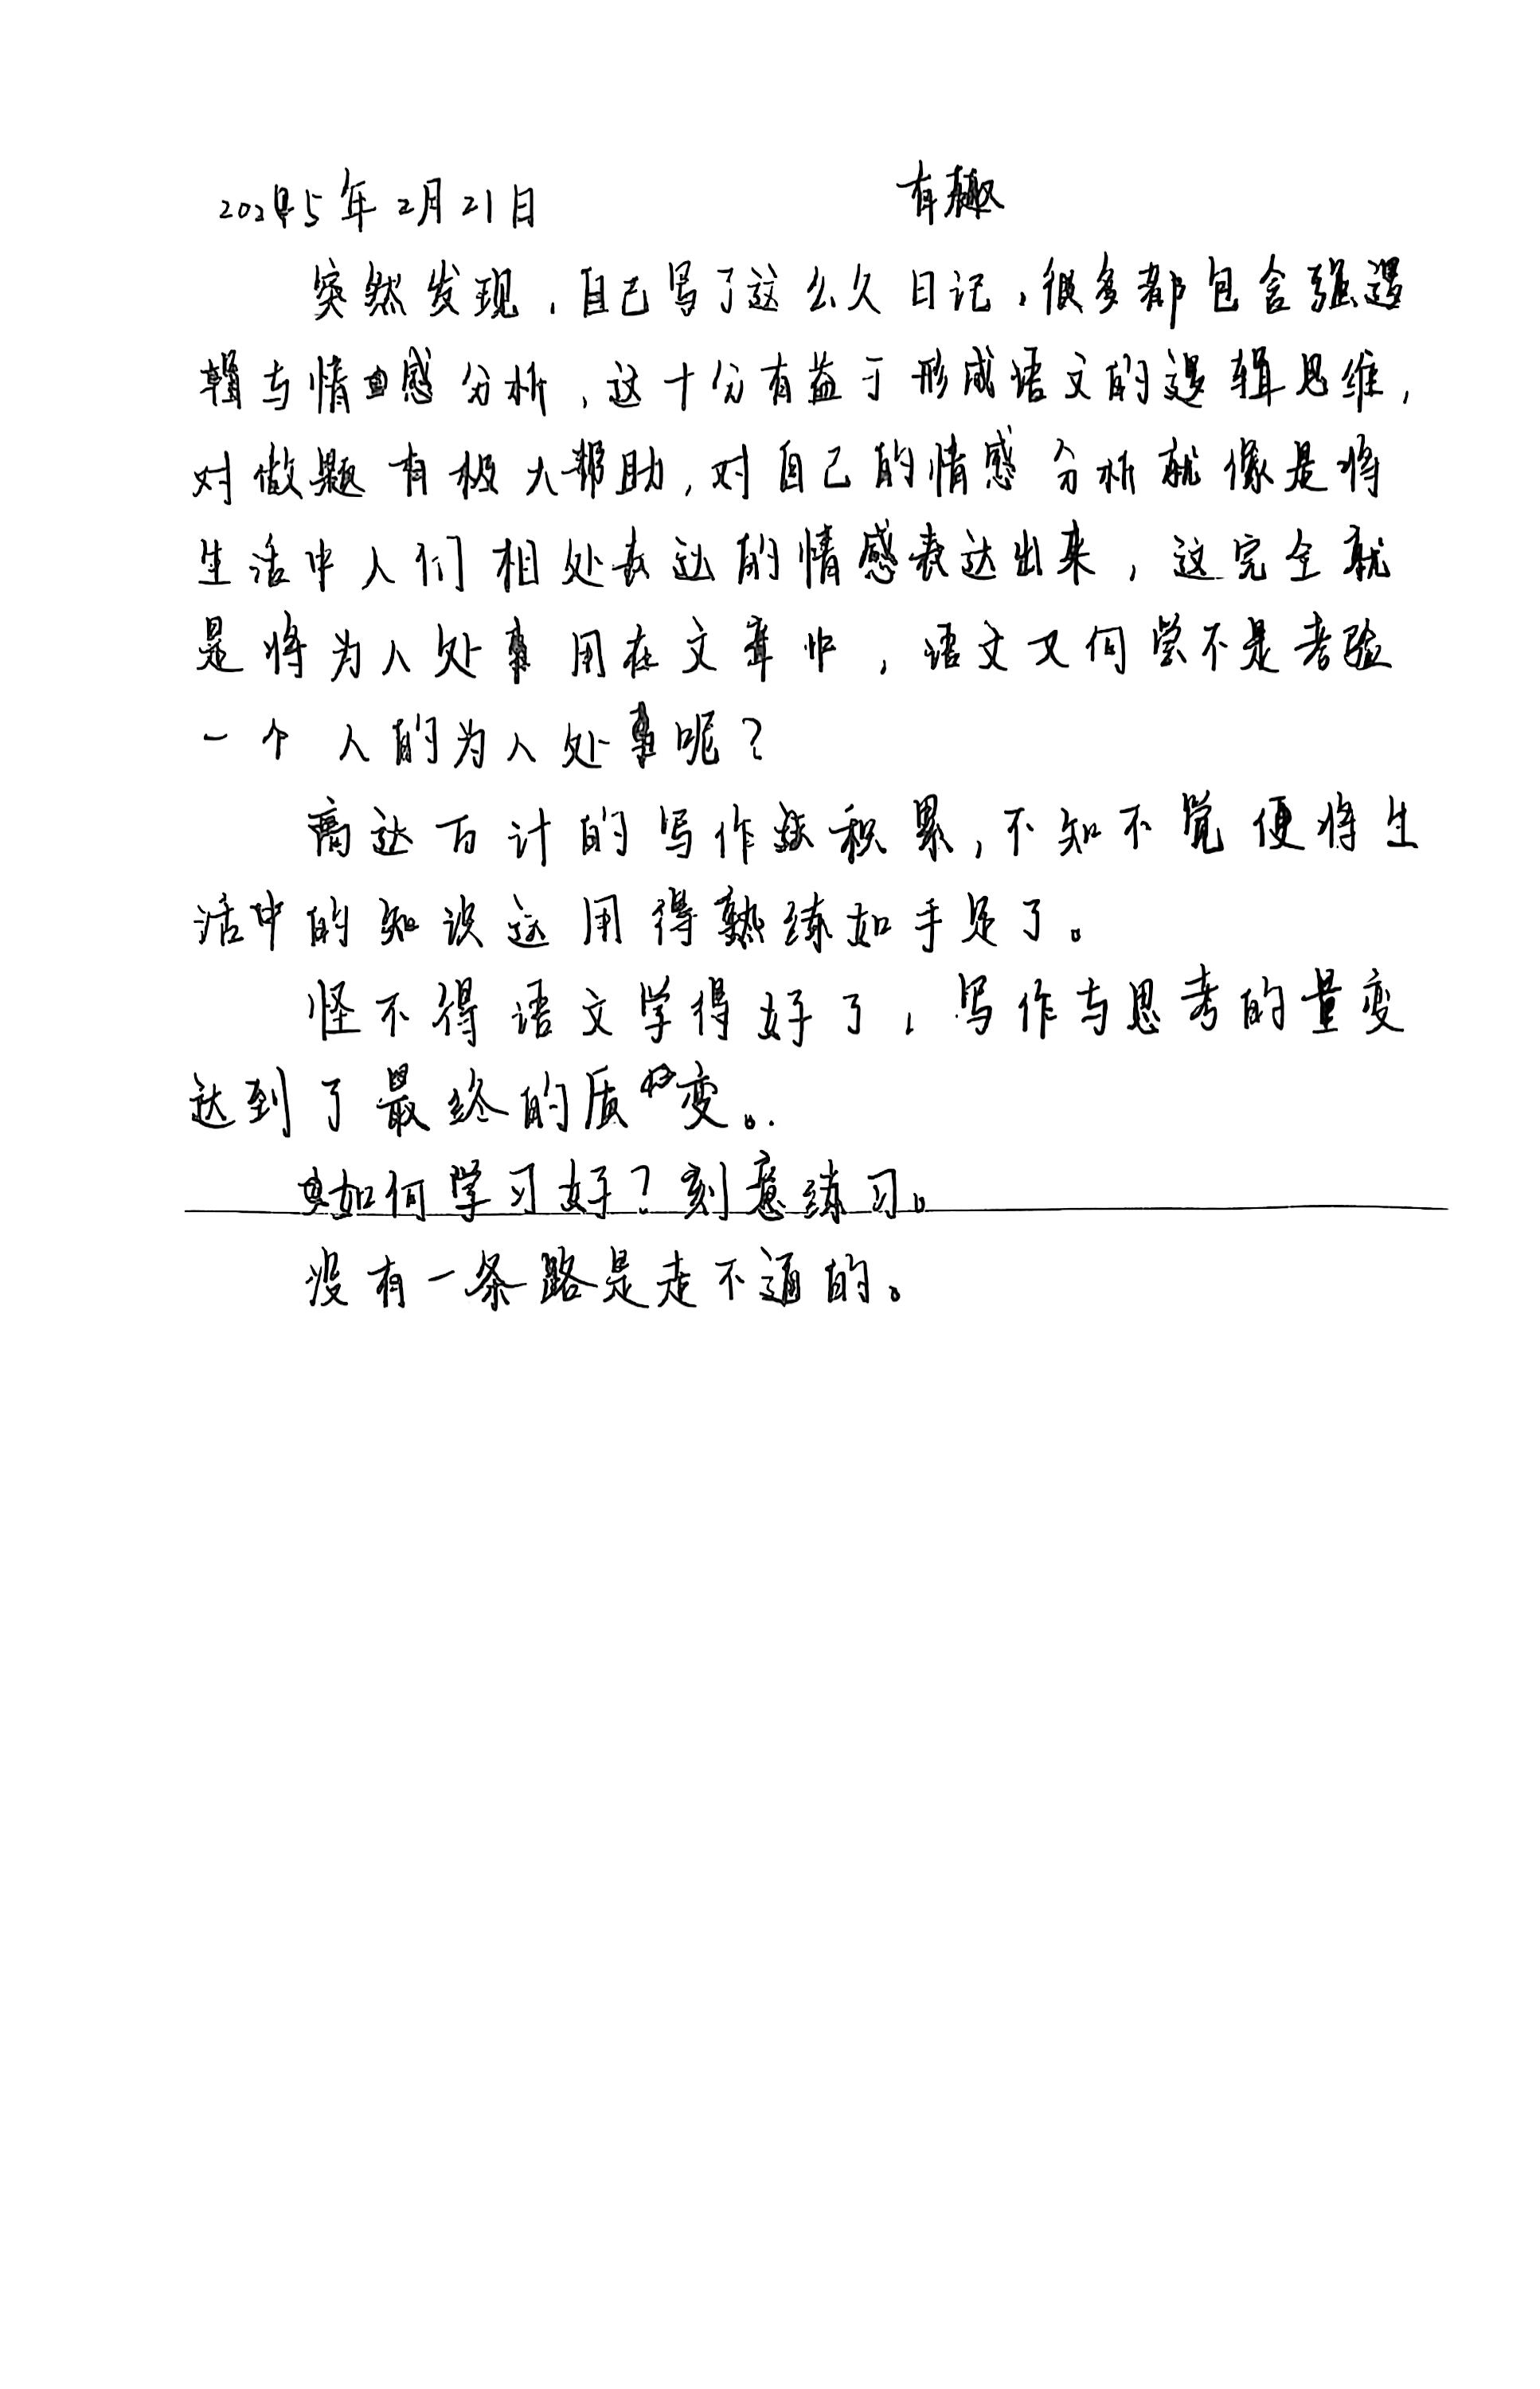 2025年2月21日 有趣
突然发现，自己写了这么久日记，很多都包含强逻
辑与情感分析，这十分有益于形成语文的逻辑思维，
对做题有极大帮助，对自己的情感分析就像是将
生活中人们相处表达的情感表达出来，这完全就
是将为人处事用在文章中，语文又何尝不是考验
一个人的为人处事呢？
高达百计的写作积累，不知不觉便将生
活中的知识运用得熟练如手足了。
怪不得语文学得好了，写作与思考的量变
达到了最终的质变。
如何学习好？刻意练习。
没有一条路是走不通的。